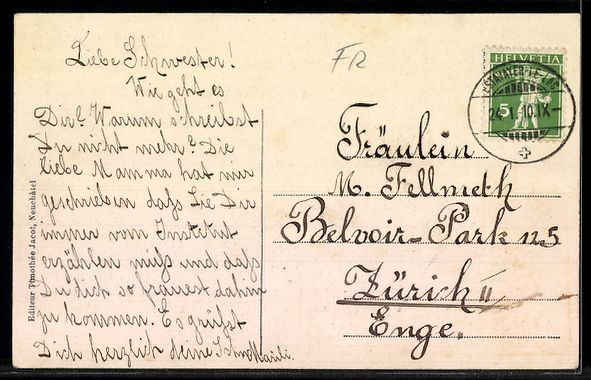 Liebe Schwester!
Wie geht es
Dir? Warum schreibst
Du nicht mehr? Die
liebe Mamma hat mir
geschrieben daſs Sie Dir
immer vom Institut
erzählen müſs und daſs
Du dich so freuest dahin
zu kommen. Es grüſst
Dich herzlich deine Schw.
Editeur Timothée Jacot, Neuchâtel
FR
HELVETIA
5
ESTAVAYER-LE-LAC
24.I.10.IX-
Fräulein
M. Fellmeth
Belvoir-Park 125
Zürich II
Enge.